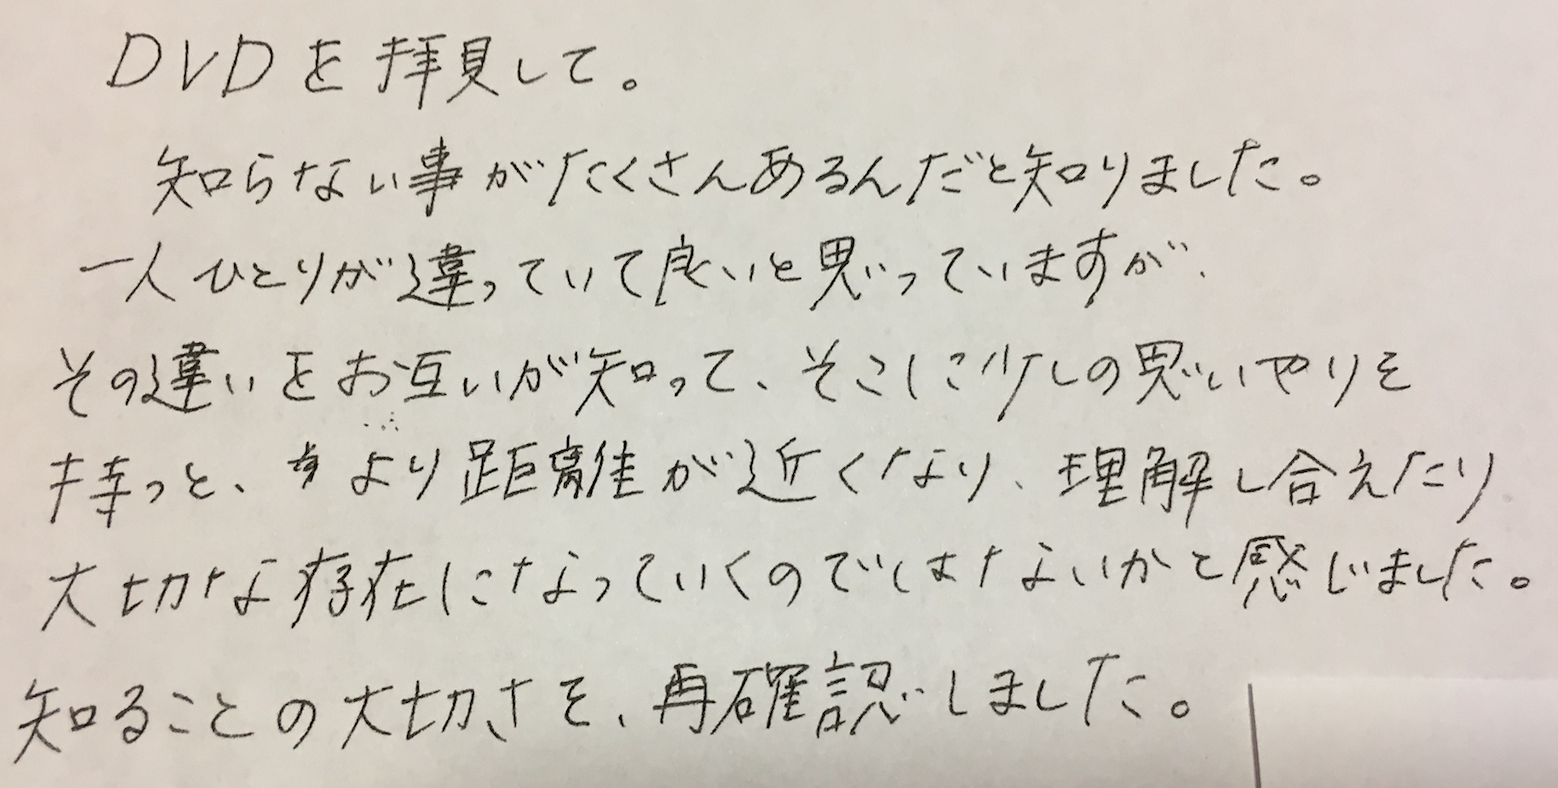 DVDを拝見して。
知らない事がたくさんあるんだと知りました。
一人ひとりが違っていて良いと思っていますが、
その違いをお互いが知って、そこに少しの思いやりを
持つと、より距離が近くなり、理解し合えたり
大切な存在になっていくのではないかと感じました。
知ることの大切さを、再確認しました。